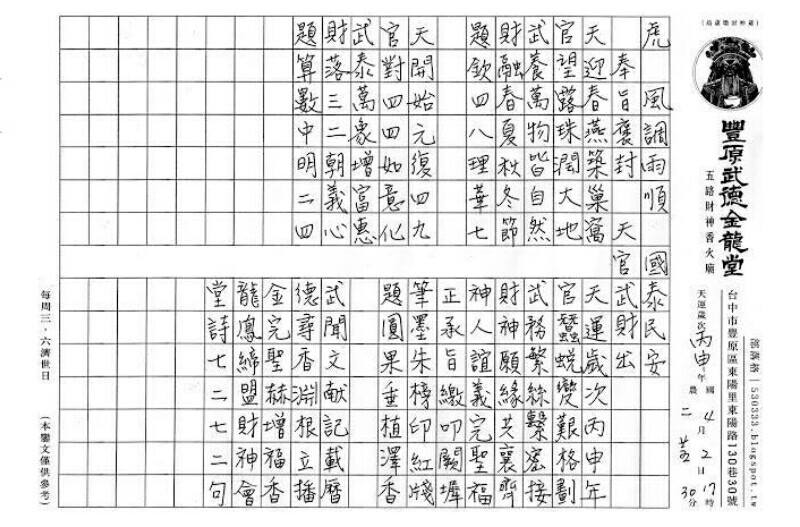 豐原武德金龍堂
五路財神香火廟
部落格｜530333.blogspot.tw
台中市豐原區東陽里東陽路130巷30號
天運歲次丙申年
國4月2日17時30分
農二
虎 風調雨順 國泰民安
奉旨褒封 天官武財出
天迎春燕築巢窩
官望露珠潤大地
武養萬物皆自然
財融春夏秋冬節
題欽四八理華七
天開始元復四九
官對四四如意化
武泰萬象增富惠
財落三二朝義心
題算數中明二四
天運歲次丙申年
官蠶蛻變艱格劃
武務繁絲繫密接
財神願緣共襄齊
神人誼義完聖福
正承旨繳叩闕墀
筆墨朱榜印紅牋
題圓果垂植澤香
武聞文献記載曆
德尋香淵根立播
金完聖赫增福香
龍鳳締盟財神會
堂詩七二七二句
每周三．六濟世日
(本鸞文僅供參考)